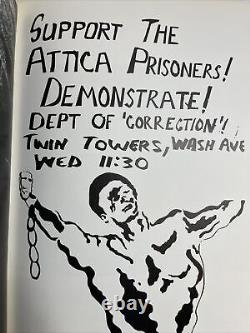 SUPPORT THE
ATTICA PRISONERS!
DEMONSTRATE!
DEPT OF 'CORRECTION'!
TWIN TOWERS, WASH AVE
WED 11:30
ebth.com